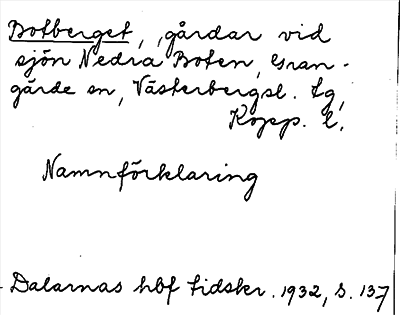 Botberget, gårdar vid
sjön Nedra Boten, Gran-
gärde sn, Västerbergsl. tg,
Kopp. l.
Namnförklaring
Dalarnas hbf tidskr. 1932, s. 137